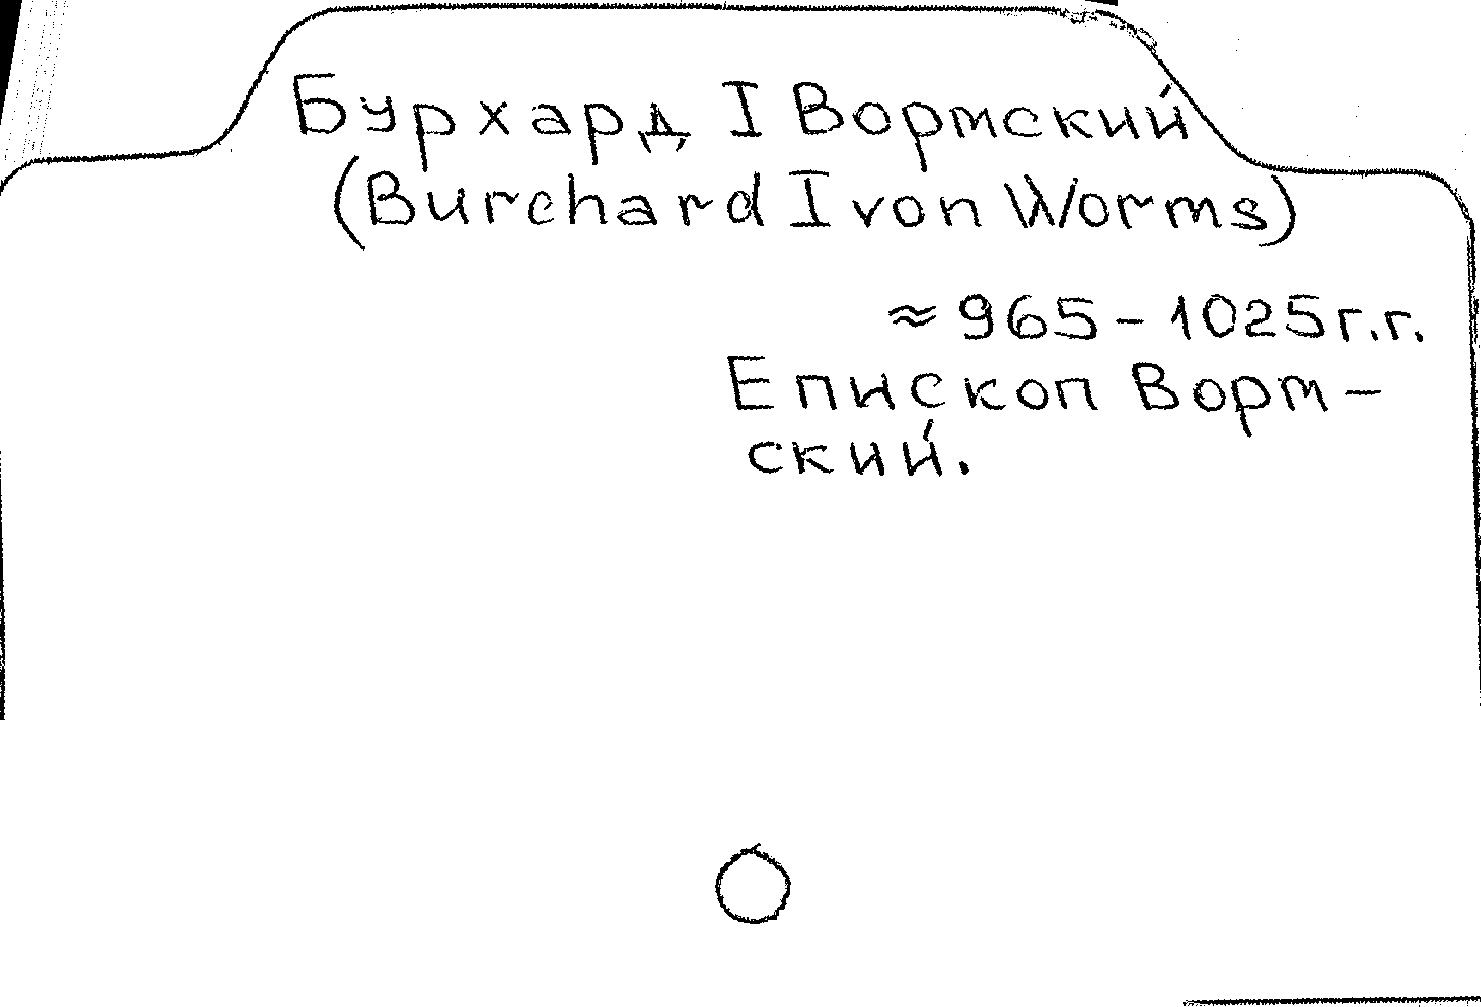 Бурхард I Вормский
(Burchard I von Worms)
≈ 965 - 1025 г.г.
Епископ Ворм-
ский.